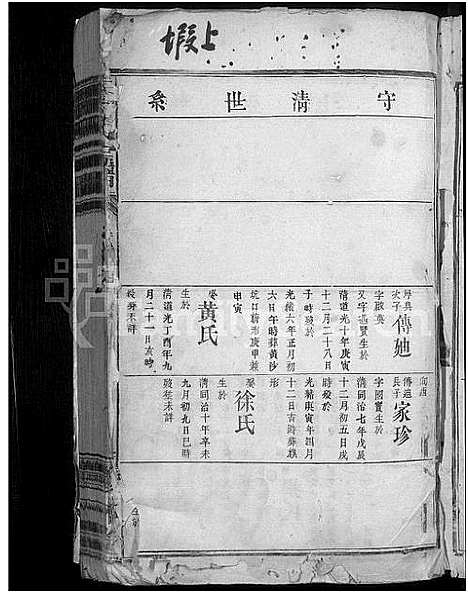 上塅
守清世系
傳馳
次子
字啟英
又字憑賢生於
清道光十年庚寅
十二月二十八日
子時歿於
光緒六年正月初
六日午時葬黄沙
坑口獅形庚甲兼
申寅
娶黃氏
生於
清道光丁酉年九
月二十一日亥時
歿葬未詳
傳馳
長子
家珍
字國寶生於
清同治七年戊辰
十二月初五日戌
時歿於
光緒庚寅年四月
十二日吉時葬雅
形
娶徐氏
生於
清同治十年辛未
九月初九日巳時
歿葬未詳